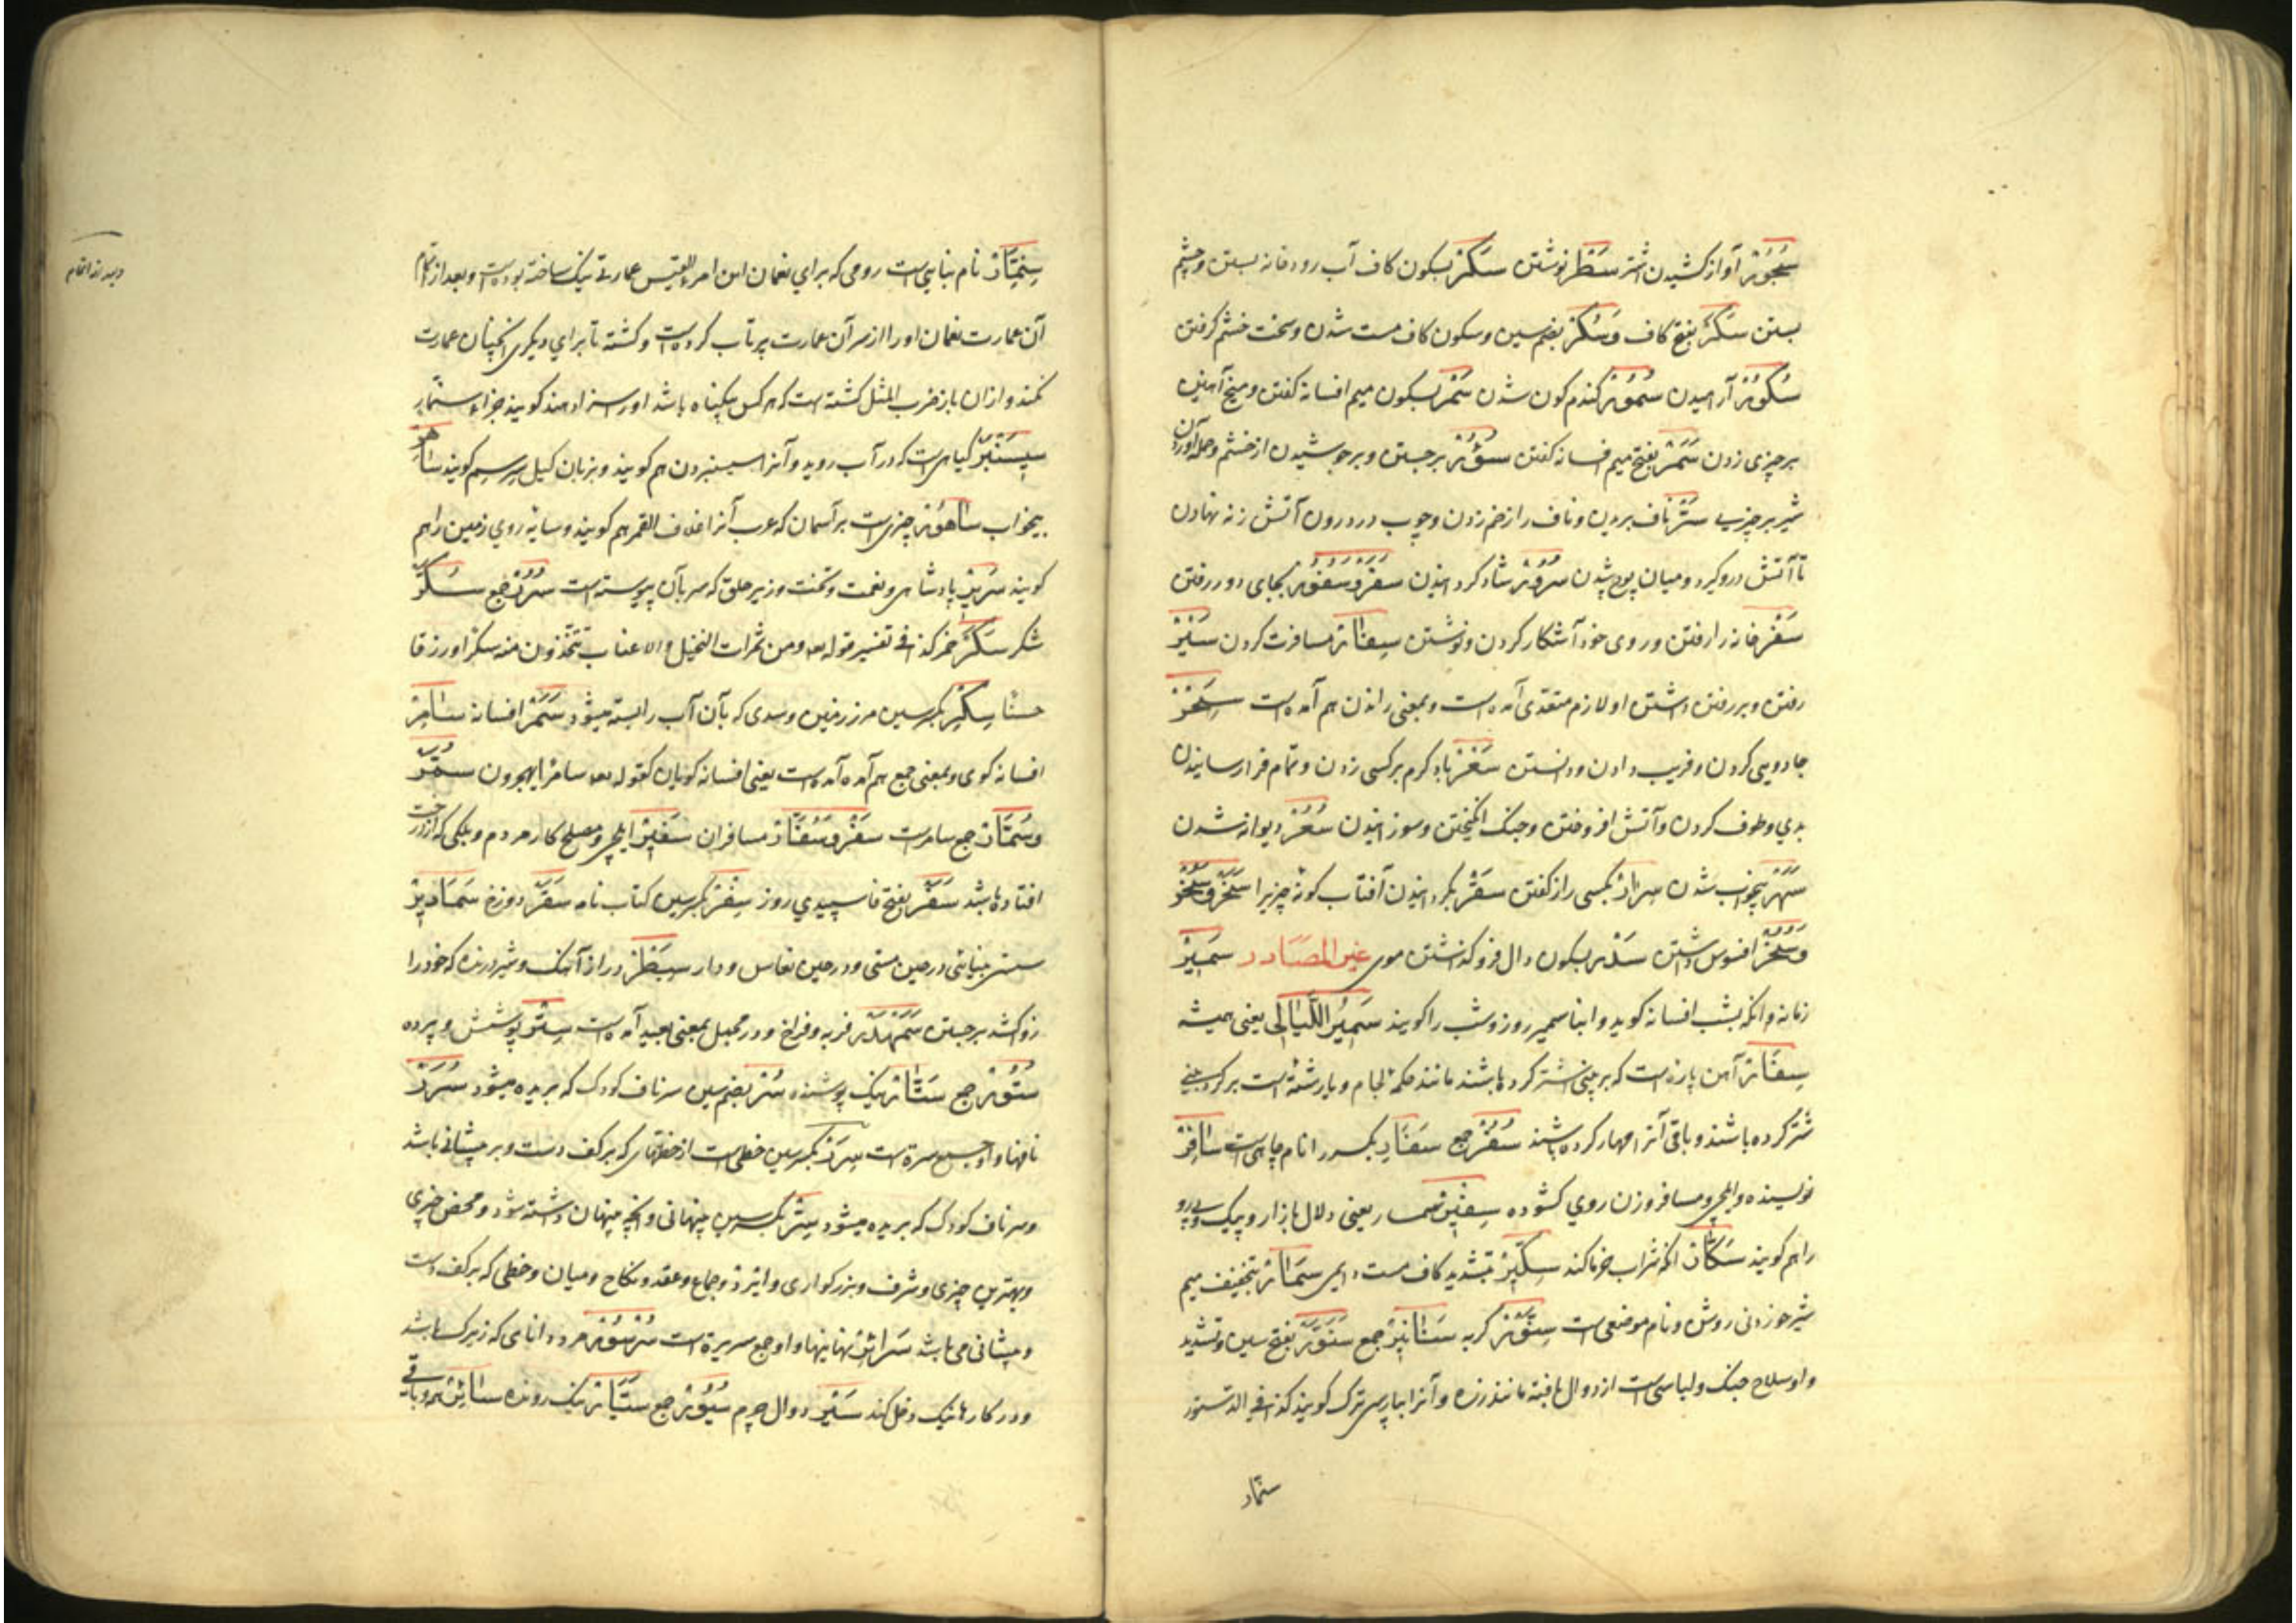 سُجُور آواز کشیدن اشتر سَطر نوشتن سَکر بسکون کاف آب رودخانه بستن و چشم
بستن سَکَر بفتح کاف و سُکر بضم سین و سکون کاف مست شدن و سخت خشم گرفتن
سُکُور آرامیدن سُمُور گندم کون شدن سَمر بسکون میم افسانه گفتن و میخ آهنین
بر چیزی زدن سَمَر بفتح میم افسانه گفتن سُؤُر برجستن و برجوشیدن از خشم و حمله آوردن
شیر بر چیزی سَرّ ناف بریدن و ناف را زخم زدن و چوب در درون آتش زنه نهادن
تا آتش درو گیرد و میان پوچ شدن سُرُور شاد گردانیدن سَفر و سُفُور بجای دور رفتن
سَفر خانه را رفتن و روی خود آشکار کردن و نوشتن سِفار مسافرت کردن سَیر
رفتن و بر رفتن داشتن او لازم متعدی آمده است و بمعنی راندن هم آمده است سِحر
جادویی کردن و فریب دادن و دانستن سَعر باد گرم بر کسی زدن و تمام فرا رسانیدن
بدی و طوف کردن و آتش افروختن و جنگ انگیختن و سوزانیدن سُعُر دیوانه شدن
سَهَر بیخواب شدن سِرار بکسی راز گفتن سَقر بگردانیدن آفتاب گونه چیزیرا سَخَر و سُخر
و سُخُر افسوس داشتن سَدر بسکون دال فرو گذاشتن موی غیر المصادر سَمِیر
زمانه و انکه بشب افسانه گوید و ابنا سمیر روز و شب را گویند سَمِیرُ اللَّیَالِی یعنی همیشه
سِفَار آهن پاره است که بر بینی اشتر کرده باشند مانند حکمه لجام و یا رشته است بر گرد بینی
شتر کرده باشند و باقی آنرا مهار کرده باشند سُفُر جمع سَفَارِ بکسر را نام چاهی است سَافِر
نویسنده و ایلچی و مسافر و زن روی گشوده سِفسِیر سمسار یعنی دلال بازار و پیک و پیرو
را هم گویند سَکَّار انکه شراب خرما کند سِکِّیر بتشدید کاف مست دایمی سَمَار بتخفیف میم
شیر و نام موضعی است سِنَّور گربه سَنَانِیر جمع سَنَوَّر بفتح سین و تشدید
واو سلاح جنگ و لباسی است از دوال بافته مانند زره و آنرا بپارسی ترک گویند کذا فی الدستور
سنمار
سِنِمَّار نام بنایی است رومی که برای نعمان ابن امرء القیس عمارتی نیک ساخته بوده است و بعد از اتمام
آن عمارت نعمان او را از سر آن عمارت پرتاب کرده است و کشته تا برای دیگری انچنان عمارت
نکند و ازان باز ضرب المثل گشته است که هر کس بیگناه باشد او را سزا دهند گویند جزاء سنمار
سِیسَنبَر گیاهی است که در آب روید و آنرا سیسنبرون هم گویند و بزبان گیل سرسم گویند سَاهر
بیخواب سَاهُور چیزی است بر آسمان که عرب آنرا غلاف القمر هم گویند و سایه روی زمین را هم
گویند سَرِیر پادشاهی و نعمت و تخت و زیر حلق که سر بآن پیوسته است سُرُر جمع سُکَّر
شکر سَکَر خمر کذا فی تفسیر قوله تعه ومن ثمرات النخیل والاعناب تتخذون منه سکرا ورزقا
حسنا سِکر بکسر سین مرز زمین و سدی که بآن آب را بسته میشود سَمَر افسانه سَامِر
افسانه گوی و بمعنی جمع هم آمده است یعنی افسانه گویان کقوله تعه سامرا تهجرون سُمَّر
و سُمَّار جمع سامر است سَفر و سُفَّار مسافران سَفِیر ایلچی و مصلح کار مردم و برگی که از درخت
افتاده باشد سَفَر بفتح فا سپیدی روز سِفر بکسر سین کتاب نامه سَقَر دوزخ سَمَادِیر
سستی بینایی در حین مستی و در حین نعاس و دار سِبَطر دراز آهنگ و شیر درنده که خود را
زو کشد برجستن سَمَهدَر فربه و فراخ و در مجمل بمعنی بعید آمده است سِتر پوشش و پرده
سُتُور جمع سَتَّار نیک پوشنده سُرّ بضم سین سر ناف کودک که بریده میشود سُرَر
نافها و او جمع سره است سِرَر بکسر سین خطی است از خطهای که بر کف دست و بر پیشانی باشد
و سر ناف کودک که بریده میشود سِرّ بکسر سین پنهانی و انچه پنهان داشته شود و محض چیزی
و بهترین چیزی و شرف و بزرگواری و ایزد و جماع و عقد و نکاح و میان و خطی که بر کف دست
و پیشانی می باشد سَرَائر نهانیها و او جمع سریرة است سُرسُور مرد دانای که زیرک باشد
و در کارها نیک دخل کند سَیر دوال چرم سُیُور جمع سَیَّار نیک رونده سَائر همه و باقی